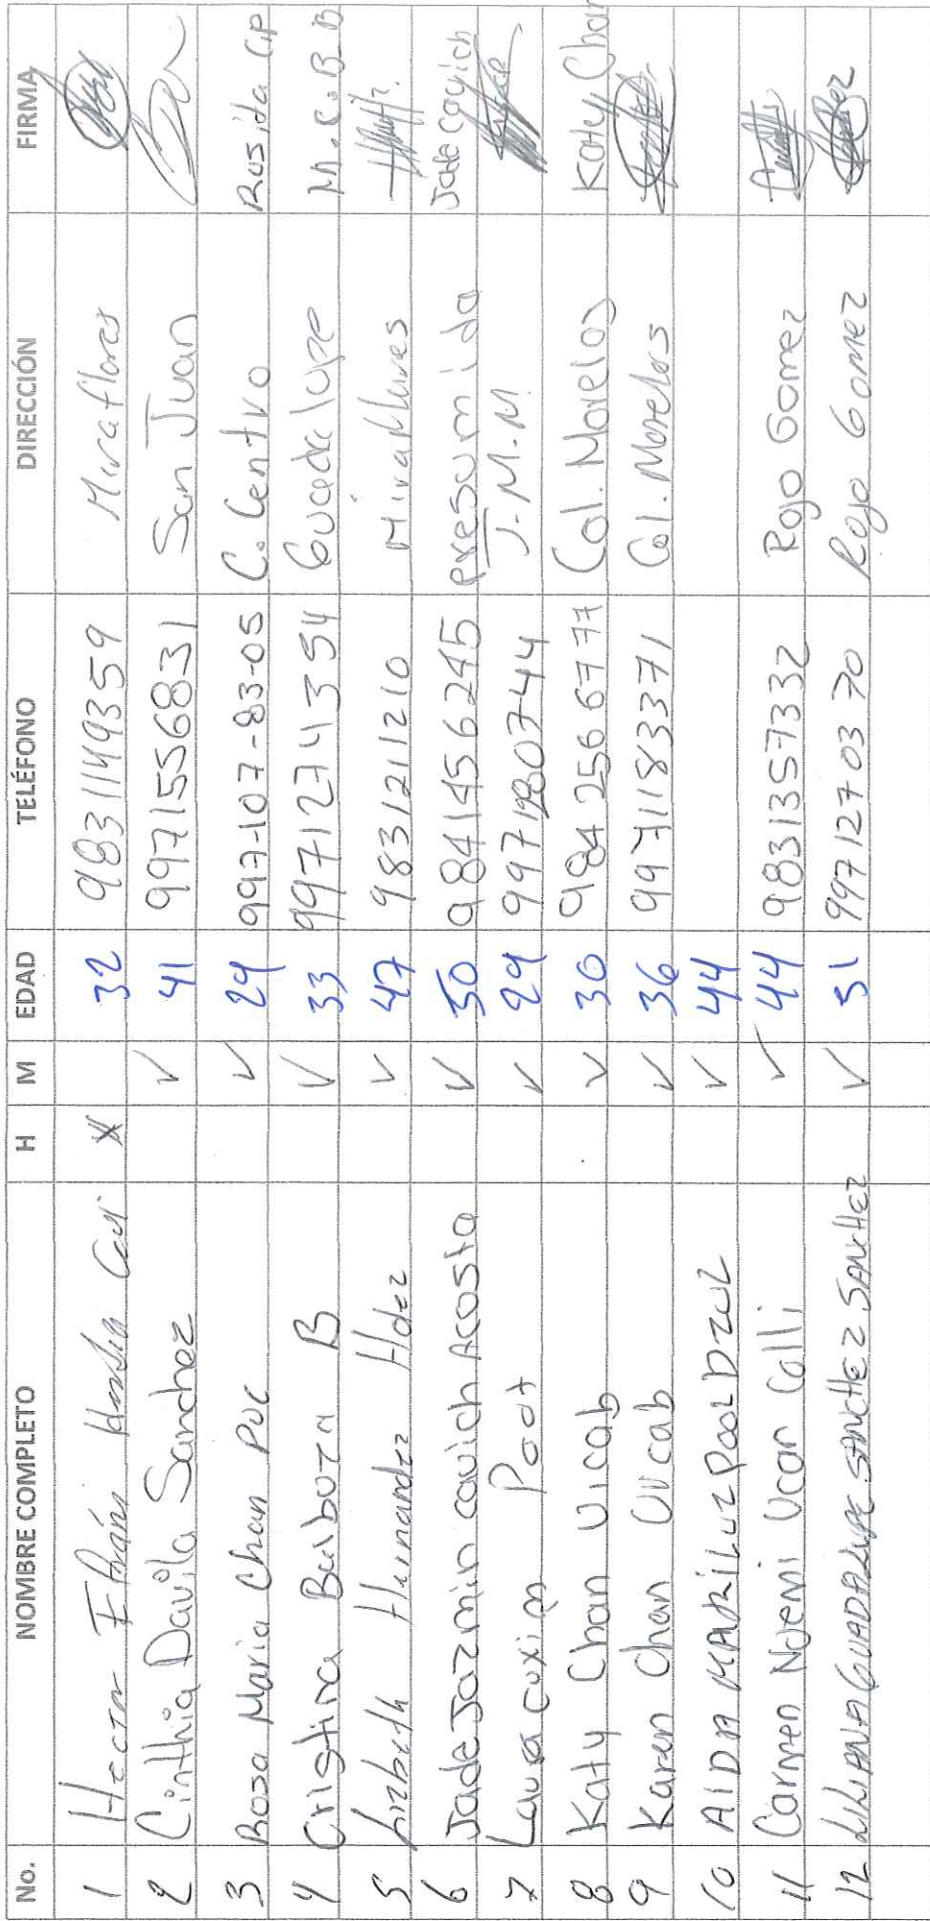 No. NOMBRE COMPLETO H M EDAD TELÉFONO DIRECCIÓN FIRMA
1 Hector Efraín X 32 9831149359 Miraflores
2 Cinthia Davila Sanchez ✓ 41 9971556831 San Juan
3 Rosa Maria Chan Puc ✓ 29 997-107-83-05 C. Centro Rosita CP
4 Cristina Balboza B ✓ 33 9971274354 Guadalupe M.C.B.B
5 Lizbeth Hernandez Hdez ✓ 47 9831211210 Miraflores
6 Jade Jazmin cauich Acosta ✓ 50 9841456245 presumida Jade Cauich
7 Laura cuxim Poot ✓ 29 997 J.M.M
8 Katy Chan Uicab ✓ 30 984 256 6777 Col. Morelos Katy Chan
9 Karen Chan Uicab ✓ 36 9971183371 Col. Morelos
10 AIDA MARILUZ POOL DZUL ✓ 44
11 Carmen Noemi Ucan Colli ✓ 44 9831357332 Rojo Gomez
12 LILIANA GUADALUPE SANCHEZ SANCHEZ ✓ 51 9971270370 Rojo Gomez